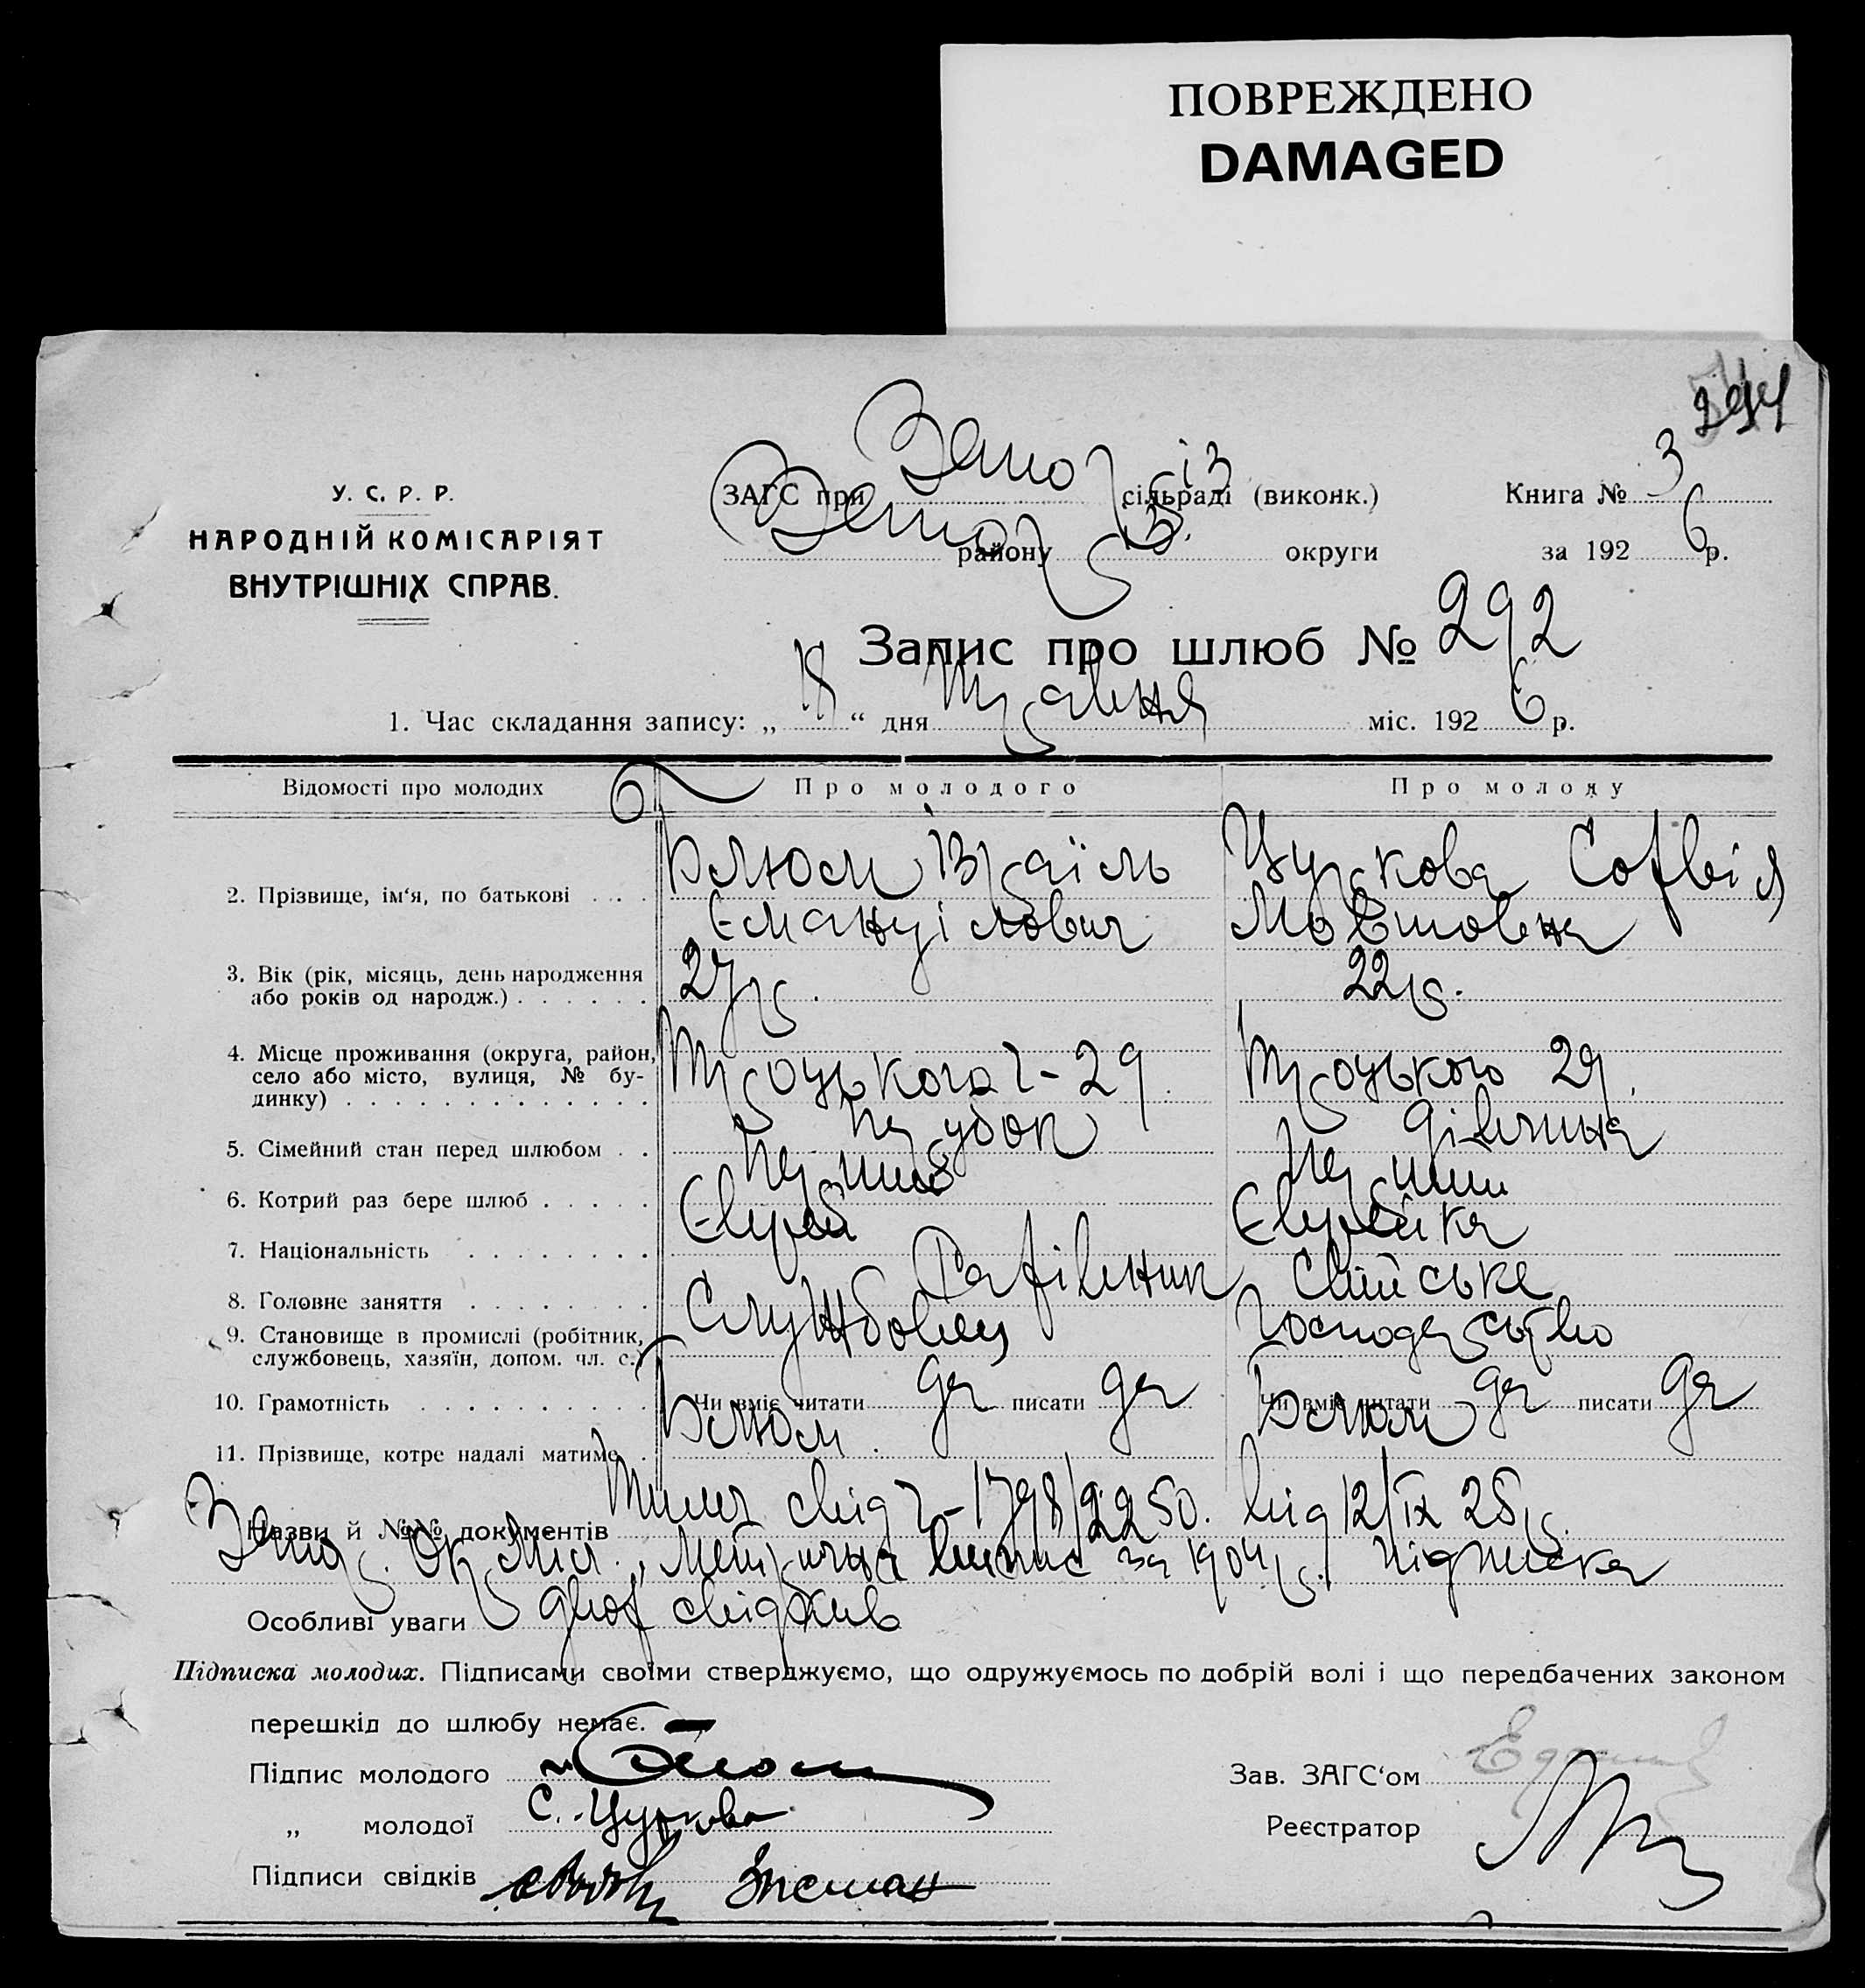 ПОВРЕЖДЕНО
DAMAGED
У. С. Р. Р.
НАРОДНІЙ КОМІСАРІЯТ
ВНУТРІШНІХ СПРАВ.
ЗАГС при сільраді (виконк.)
району округи
Книга № 3
за 1926 р.
Запис про шлюб № 292
1. Час складання запису: „18“ дня Травня міс. 1926 р.
Відомості про молодих Про молодого Про молоду
2. Прізвище, ім'я, по батькові . . . Блюм Ізраїль Цуркова Софвія
Емануілович Мовшовена
3. Вік (рік, місяць, день народження 27 р. 22 р.
або років од народж.) . . . . . .
4. Місце проживання (округа, район,
село або місто, вулиця, № бу- Троцького 29 Троцького 29.
динку) . . . . . . . . . . . . .
5. Сімейний стан перед шлюбом . . парубок дівчина
6. Котрий раз бере шлюб . . . . . перший перший
7. Національність . . . . . . . . Єврей Єврейка
8. Головне заняття . . . . . . . . свійське
9. Становище в промислі (робітник, Службовець господарство
службовець, хазяїн, допом. чл. с.)
10. Грамотність . . . . . . . . . . Чи вміє читати да писати да Чи вміє читати да писати да
11. Прізвище, котре надалі матиме . Блюм. Блюм
Назви й №№ документів Тимч свід 1798/2250. від 12/IX 25 р.
Метрична випис за 1904 р. підписка
Особливі уваги двох свідків
Підписка молодих. Підписами своїми стверджуємо, що одружуємось по добрій волі і що передбачених законом
перешкід до шлюбу немає.
Підпис молодого Блюм
„ молодої С. Цуркова
Підписи свідків
Зав. ЗАГС'ом
Реєстратор